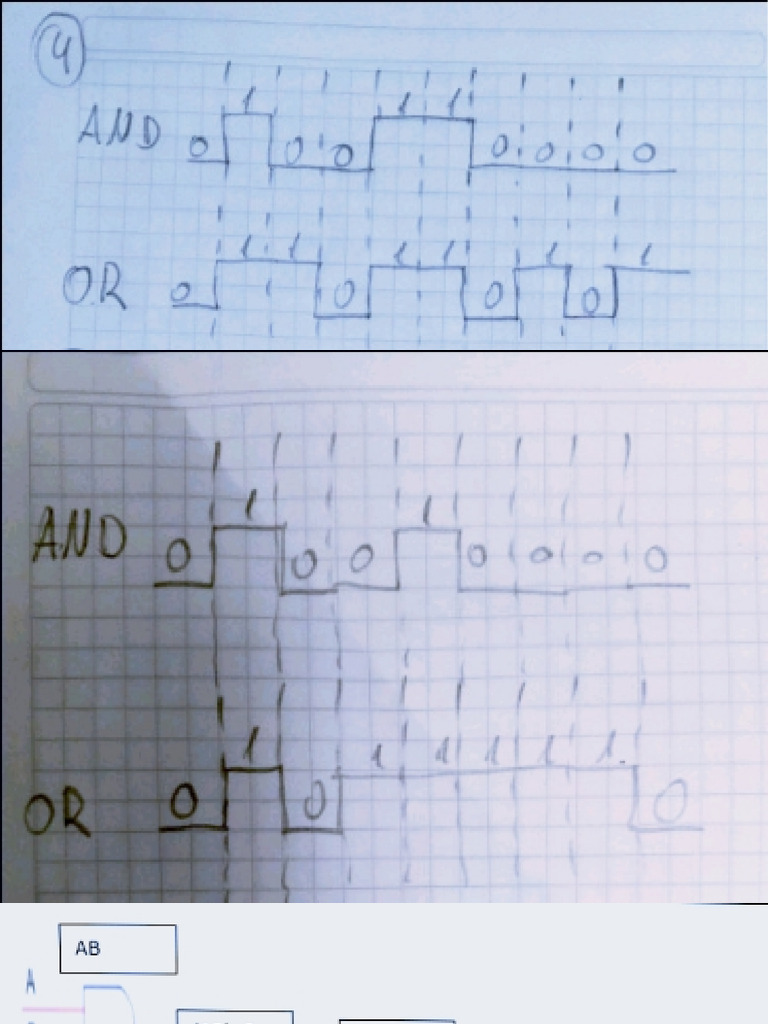 4
1 1 1
AND 0 0 0 0 0 0 0
1 1 1 1 1 1
OR 0 0 0 0
1 1
AND 0 0 0 0 0 0 0
1 1 1 1 1 1
OR 0 0 0
AB
A